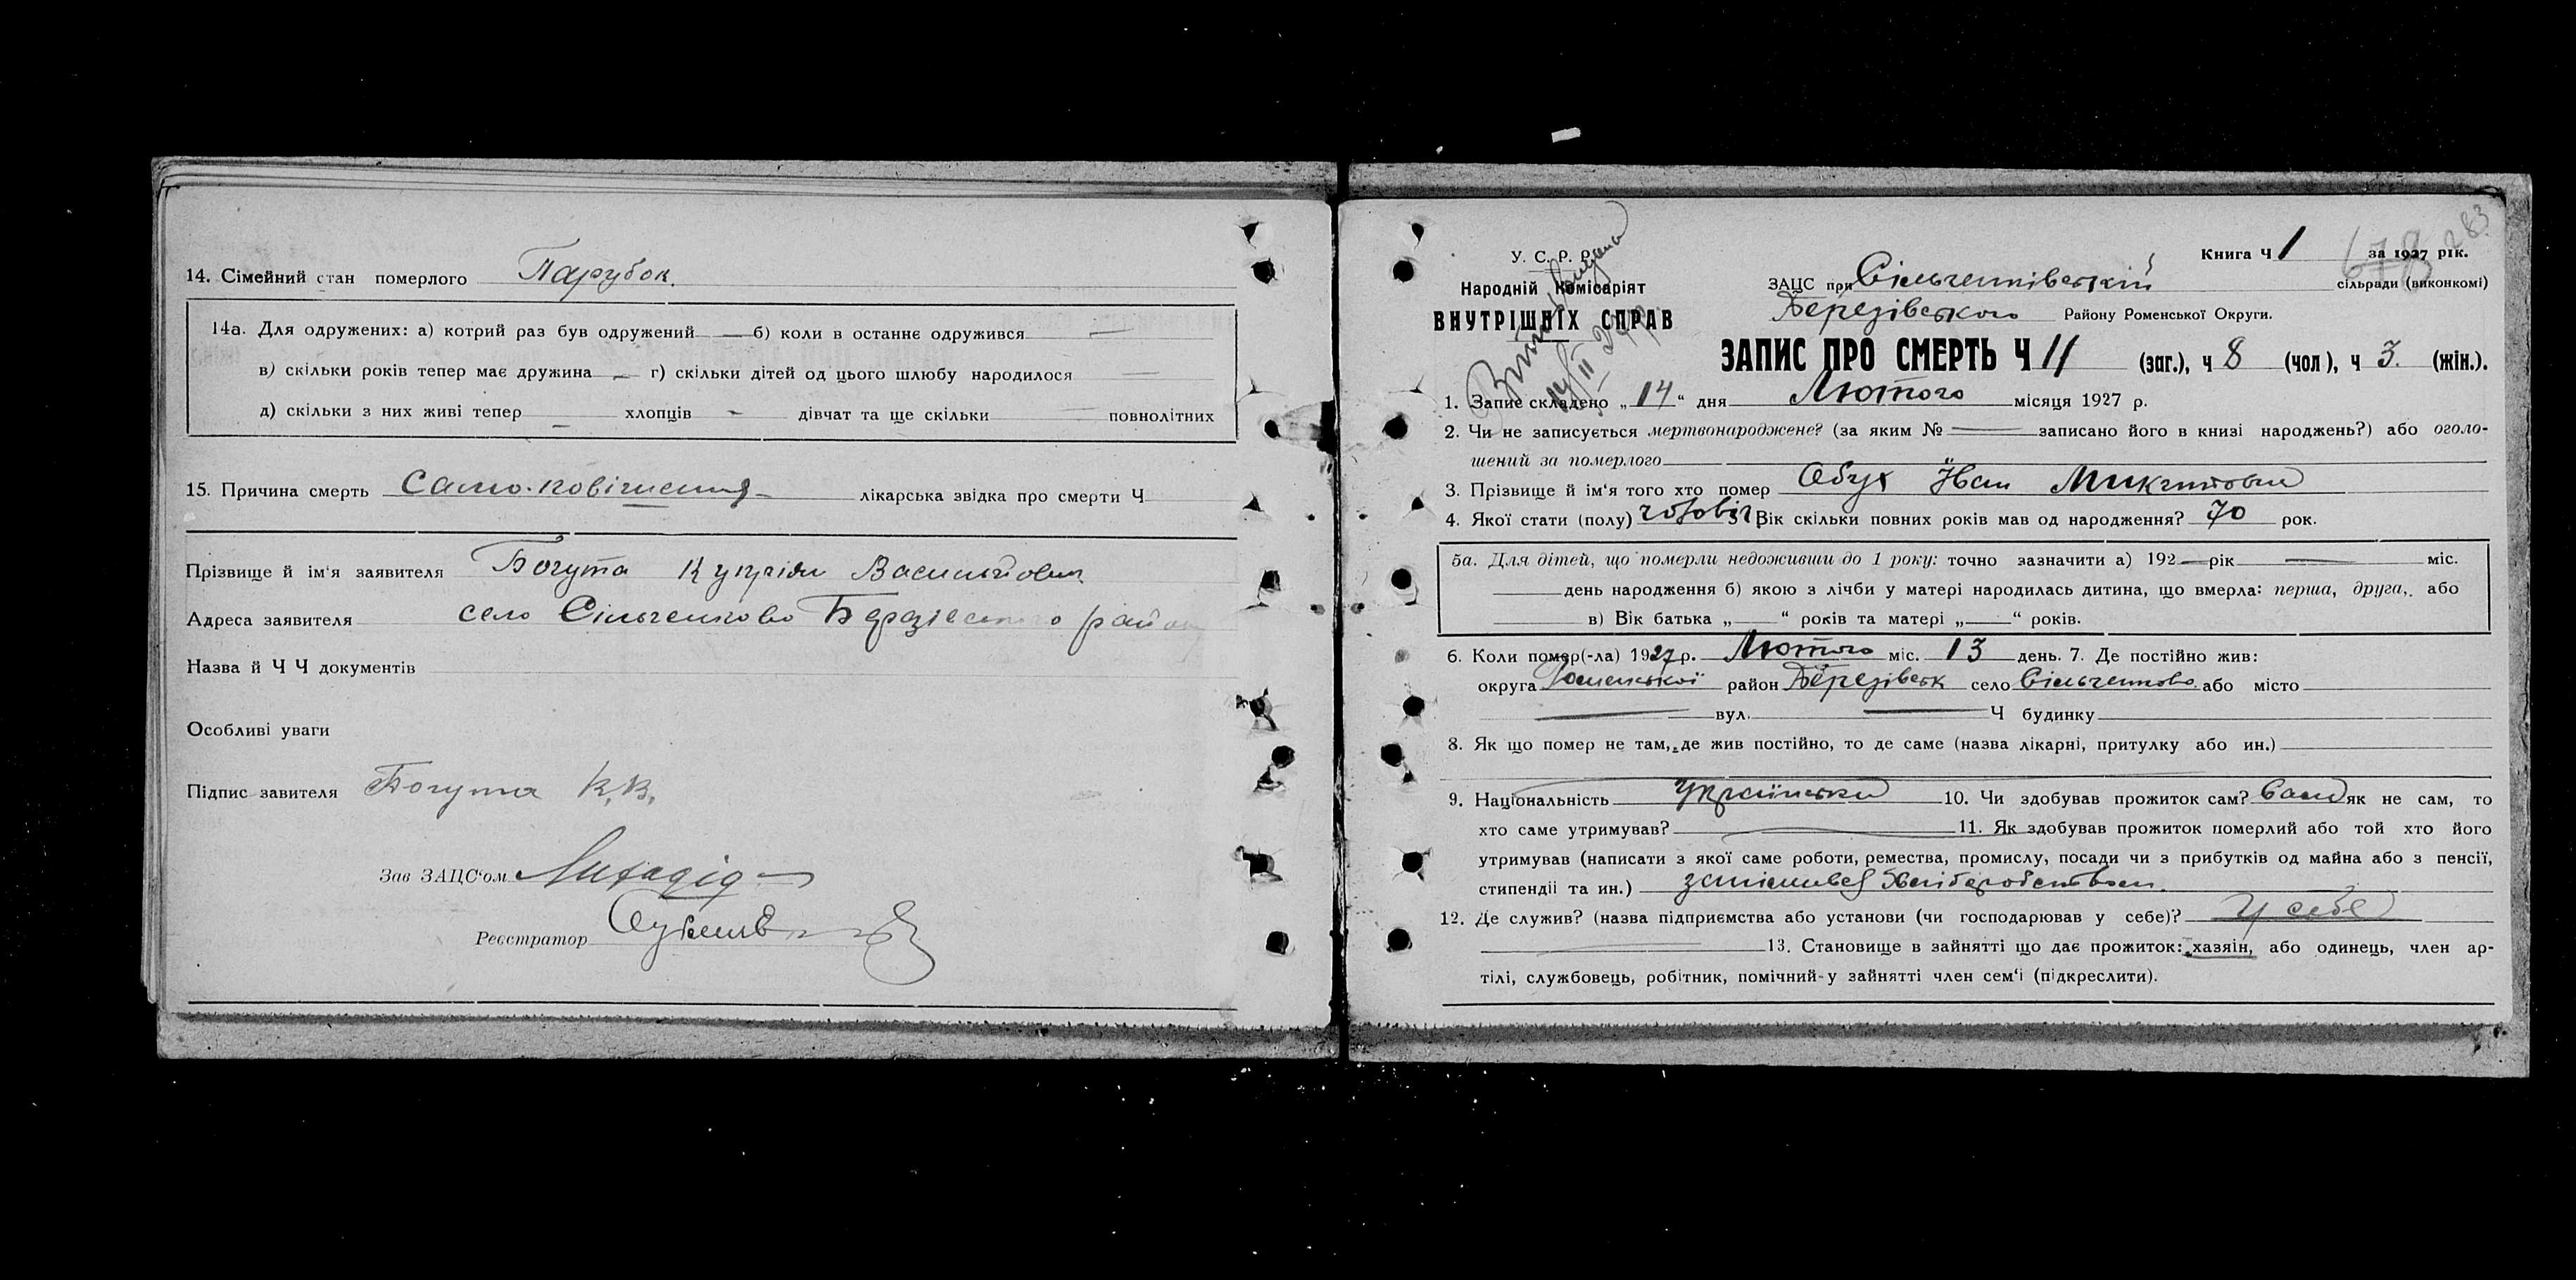 14. Сімейний стан померлого Парубок.
14а. Для одружених: а) котрий раз був одружений — б) коли в останнє одружився —
в) скільки років тепер має дружина — г) скільки дітей од цього шлюбу народилося —
д) скільки з них живі тепер — хлопців - дівчат та ще скільки — повнолітних
15. Причина смерть Само-повішення лікарська звідка про смерти Ч
Прізвище й ім'я заявителя Богута Купріян Васильйович
Адреса заявителя село Сільченково Березівського району
Назва й Ч Ч документів
Особливі уваги
Підпис завителя Богута К.В.
Зав ЗАЦС'ом Лихадід
Реєстратор
283
Книга Ч 1 за 1927 рік.
678
У. С. Р. Р.
Народній Комісаріят
ВНУТРІШНІХ СПРАВ
14/II 27 р
ЗАЦС при Сільченківській сільради (виконкомі)
Березівського Району Роменської Округи.
ЗАПИС ПРО СМЕРТЬ Ч 11 (заг.), ч 8 (чол), ч 3. (жін.).
1. Запис складено „14“ дня Лютого місяця 1927 р.
2. Чи не записується мертвонароджене? (за яким № — записано його в книзі народжень?) або оголо-
шений за померлого
3. Прізвище й ім'я того хто помер Обух Йван Микитович
4. Якої стати (полу) чоловіч 5 Вік скільки повних років мав од народження? 70 рок.
5а. Для дітей, що померли недоживши до 1 року: точно зазначити а) 192— рік — міс.
день народження б) якою з лічби у матері народилась дитина, що вмерла: перша, друга, або
в) Вік батька „—“ років та матері „—“ років.
6. Коли помер(-ла) 1927 р. Лютого міс. 13 день. 7. Де постійно жив:
округа Роменської район Березівськ село Сільченково або місто
— вул. — Ч будинку
8. Як що помер не там, де жив постійно, то де саме (назва лікарні, притулку або ин.)
9. Національність українська 10. Чи здобував прожиток сам? Сам як не сам, то
хто саме утримував? — 11. Як здобував прожиток померлий або той хто його
утримував (написати з якої саме роботи, ремества, промислу, посади чи з прибутків од майна або з пенсії,
стипендії та ин.) занімався хліборобством.
12. Де служив? (назва підприємства або установи (чи господарював у себе)? У себе
13. Становище в зайнятті що дає прожиток: хазяін, або одинець, член ар-
тілі, службовець, робітник, помічний-у зайнятті член сем'ї (підкреслити).